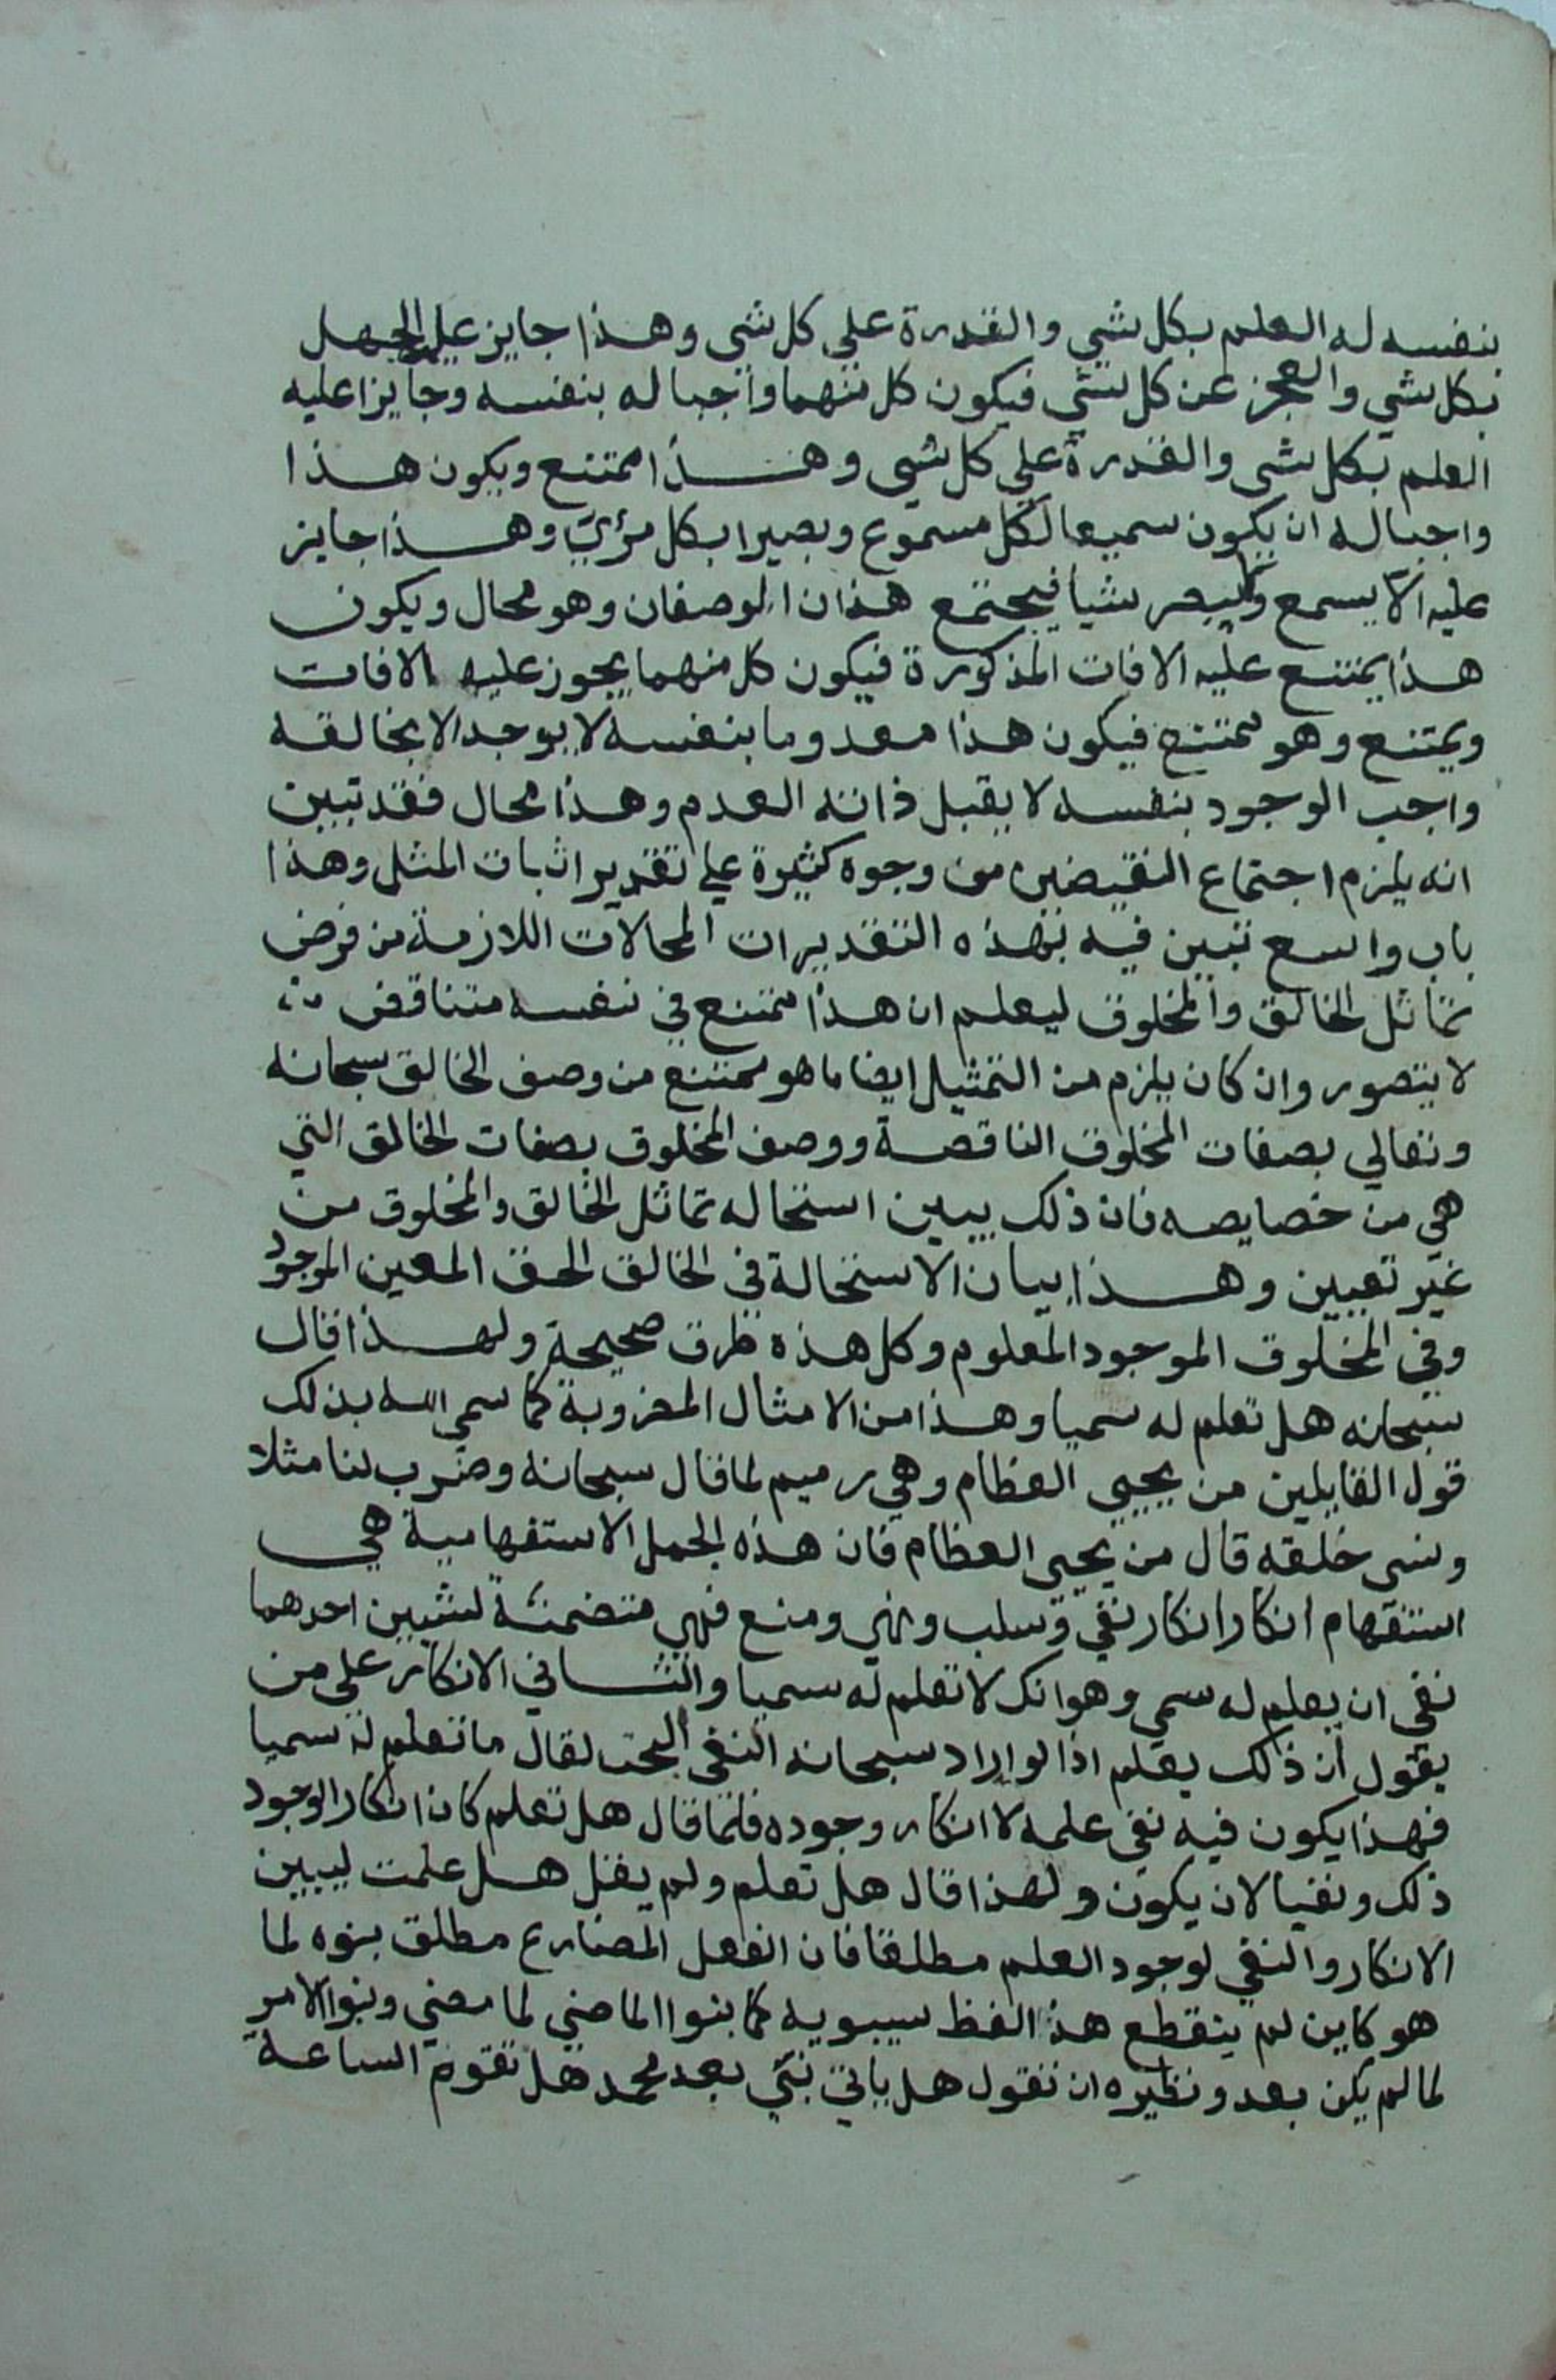 بنفسه له العلم بكل شي والقدرة علي كل شي وهذا جايز عليه الجهل
بكل شي والعجز عن كل شي فيكون كل منهما واجبا له بنفسه وجايزا عليه
العلم بكل شي والقدرة علي كل شي وهذا ممتنع ويكون هذا
واجبا له ان يكون سميعا لكل مسموع وبصيرا بكل مرئي وهذا جايز
عليه الا يسمع ولا يبصر شيا فيجتمع هذان الوصفان وهو محال ويكون
هذا يمتنع عليه الافات المذكورة فيكون كل منهما يجوز عليه الافات
ويمتنع وهو ممتنع فيكون هذا معدوما بنفسه لا يوجد الا بخالقه
واجب الوجود بنفسه لا يقبل ذاته العدم وهذا محال فقد تبين
انه يلزم اجتماع النقيضين من وجوه كثيرة علي تقدير اثبات المثل وهذا
باب واسع تبين فيه بهذه التقديرات المحالات اللازمة من فرض
تماثل الخالق والمخلوق ليعلم ان هذا ممتنع في نفسه متناقض
لا يتصور وان كان يلزم من التمثيل ايضا ما هو ممتنع من وصف الخالق سبحانه
وتعالي بصفات المخلوق الناقصة ووصف المخلوق بصفات الخالق التي
هي من خصايصه فان ذلك يبين استحاله تماثل الخالق والمخلوق من
غير تعيين وهذا بيان الاستحالة في الخالق الحق المعين الموجود
وفي المخلوق الموجود المعلوم وكل هذه طرق صحيحة ولهذا قال
سبحانه هل تعلم له سميا وهذا من الامثال المضروبة كما سمي الله بذلك
قول القايلين من يحيي العظام وهي رميم لما قال سبحانه وضرب لنا مثلا
ونسي خلقه قال من يحيي العظام فان هذه الجمل الاستفهامية هي
استفهام انكار انكار نفي وسلب ونهي ومنع فهي متضمنة لشيين احدهما
نفي ان يعلم له سمي وهو انك لا تعلم له سميا والثاني الانكار علي من
يقول ان ذلك يعلم اذ لو اراد سبحانه النفي البحت لقال ما تعلم له سميا
فهذا يكون فيه نفي علمه لا انكار وجوده فلما قال هل تعلم كان انكار الوجود
ذلك ونفيا لان يكون ولهذا قال هل تعلم ولم يقل هل علمت ليبين
الانكار والنفي لوجود العلم مطلقا فان الفعل المضارع مطلق بنوه لما
هو كاين لم ينقطع هذا لفظ سيبويه كما بنوا الماضي لما مضي وبنوا الامر
لما لم يكن بعد ونظيره ان تقول هل ياتي نبي بعد محمد هل تقوم الساعة